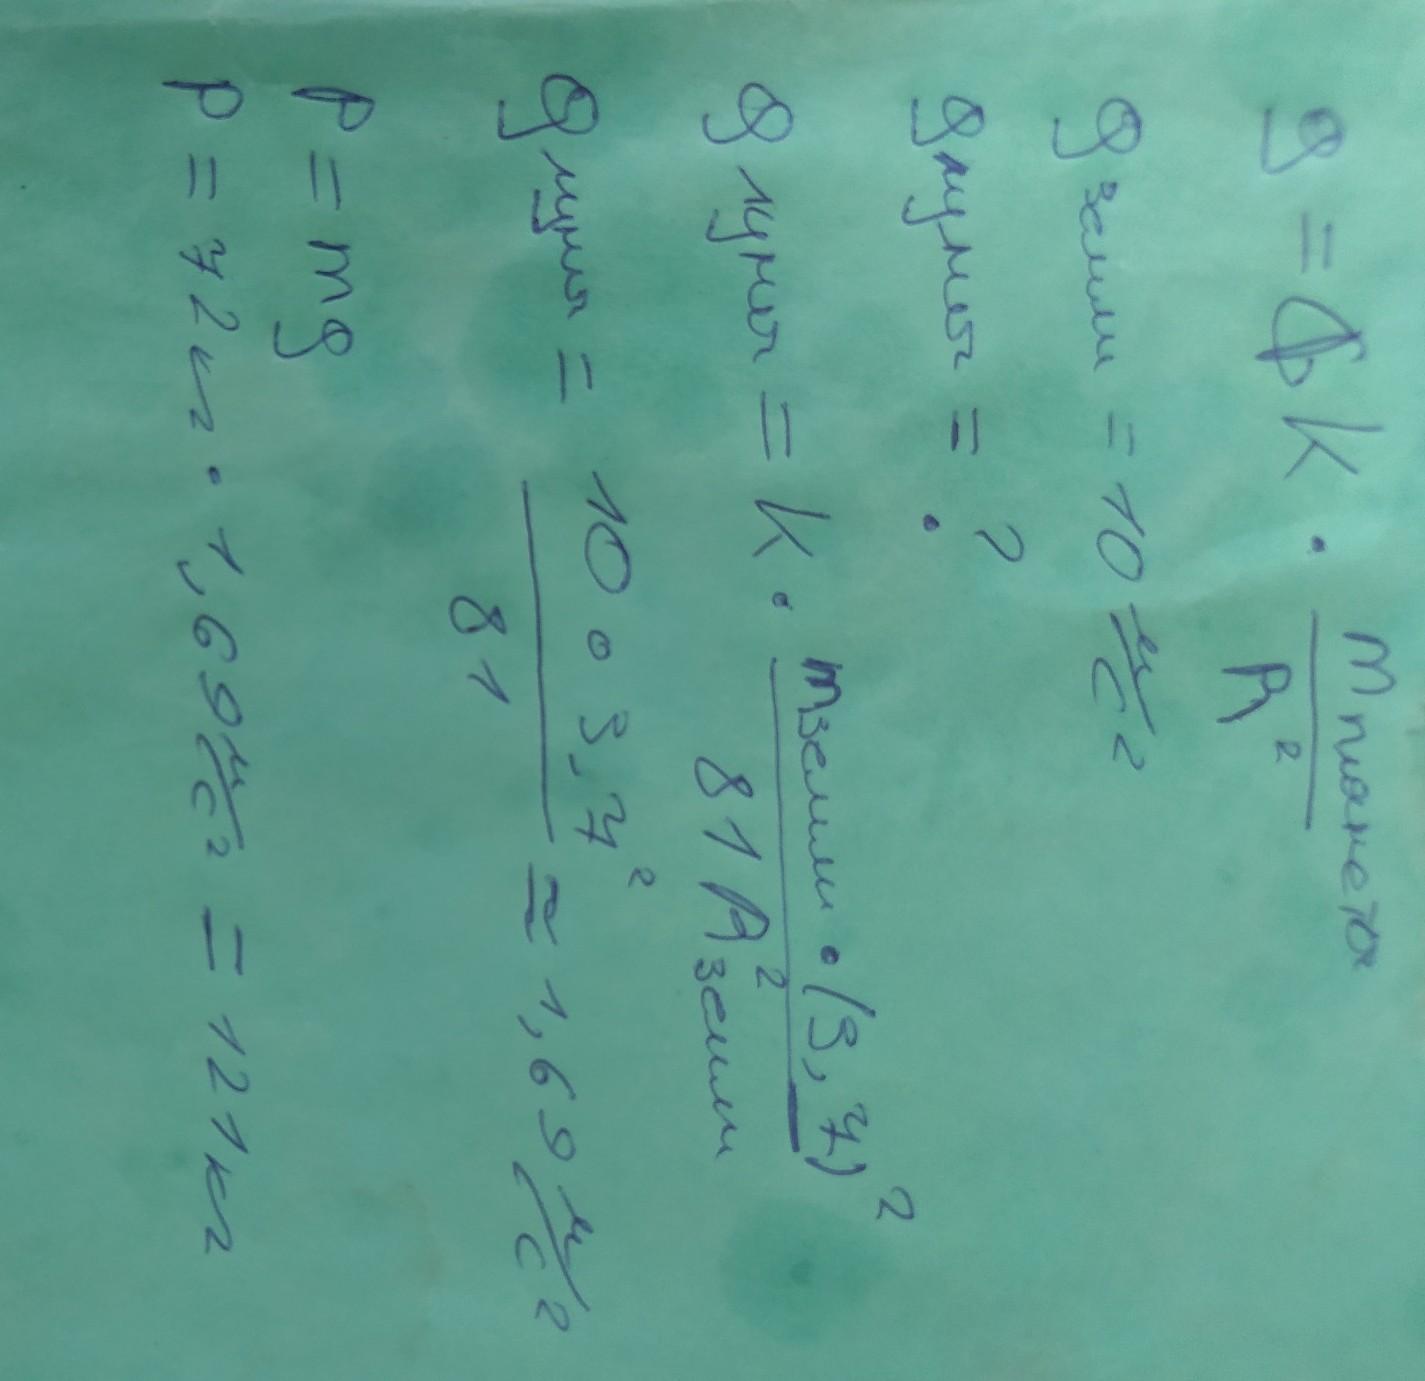 g = k · m планеты / R²
g земли = 10 м/с²
g луны = ?
g луны = k · m земли · (3,7)² / 81 R² земли
g луны = 10 · 3,7² / 81 ≈ 1,69 м/с²
P = mg
P = 72 кг · 1,69 м/с² = 121 кг